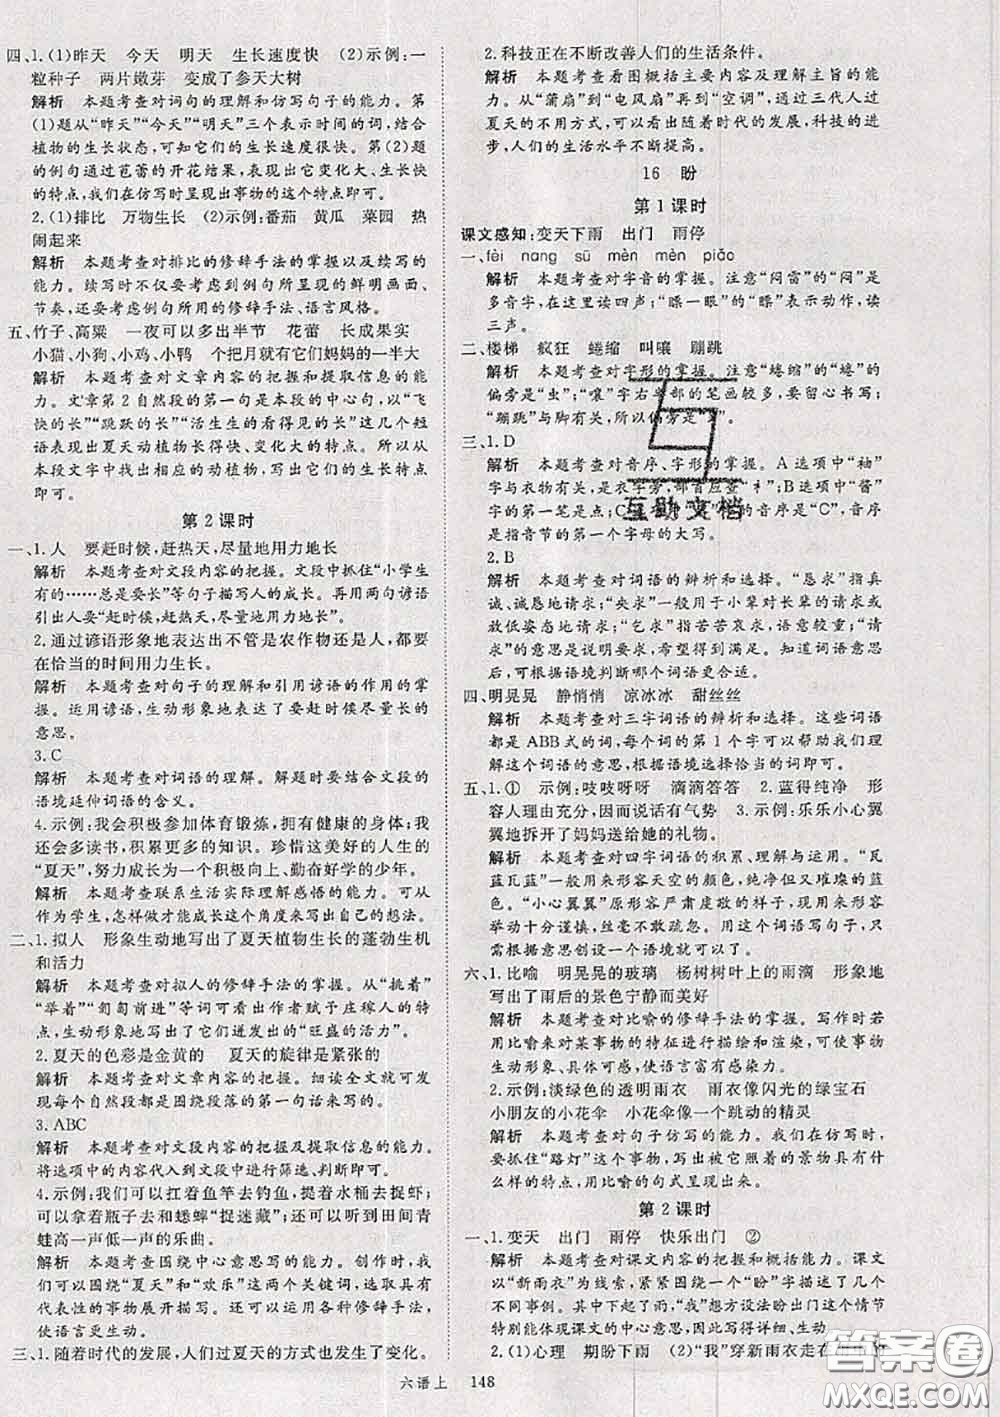 四、1.(1)昨天　今天　明天　生长速度快　(2)示例:一
粒种子　两片嫩芽　变成了参天大树
解析　本题考查对词句的理解和仿写句子的能力。第
(1)题从“昨天”“今天”“明天”三个表示时间的词,结合
植物的生长状态,可知它们的生长速度很快。第(2)题
的例句通过芭蕾的开花结果,表现出它们变化大、生长快
的特点,我们在仿写时呈现出事物的这个特点即可。
2.(1)排比　万物生长　(2)示例:番茄　黄瓜　菜园　热
闹起来
解析　本题考查对排比的修辞手法的掌握以及续写的能
力。续写时不仅要考虑到例句所呈现的鲜明画面、
节奏,也要考虑例句所用的修辞手法、语言风格。
五、竹子、高粱　一夜可以多出半节　花蕾　长成果实
小猫、小狗、小鸡、小鸭　个把月就有它们妈妈的一半大
解析　本题考查对文章内容的把握和提取信息的能
力。文章第2自然段的第一句是本段的中心句,以“飞
快的长”“跳跃的长”“活生生的看得见的长”这几个短
语表现出夏天动植物长得快、变化大的特点。所以从
本段文字中找出相应的动植物,写出它们的生长特点
即可。
第2课时
一、1.人　要赶时候,赶热天,尽量地用力地长
解析　本题考查对文段内容的把握。文段中抓住“小学生
有的……总是要长”等句子描写人的成长。再用两句谚语
引出人要“赶时候,赶热天,尽量地用力地长”。
2.通过谚语形象地表达出不管是农作物还是人,都要
在恰当的时间用力生长。
解析　本题考查对句子的理解和引用谚语的作用的掌
握。运用谚语,生动形象地表达了要赶时候成长的
意思。
3.C
解析　本题考查对词语的理解。解题时要结合文段的
语境延伸词语的含义。
4.示例:我会积极参加体育锻炼,拥有健康的身体;我
还会多读书,积累更多的知识。珍惜这美好的人生的
“夏天”,努力成长为一个积极向上、勤奋好学的少年。
解析　本题考查联系生活实际理解感悟的能力。可以
从作为学生,怎样做才能成长这个角度,写出自己的想法。
二、1.拟人　形象生动地写出了夏天植物生长的蓬勃生机
和活力
解析　本题考查对拟人的修辞手法的掌握。从“挑着”
“举着”“匍匐前进”等词可以看出作者赋予庄稼人的特
点,生动形象地写出了它们迸发出的“旺盛的活力”。
2.夏天的色彩是金黄的　夏天的旋律是紧张的
解析　本题考查对文章内容的把握。细读全文就可发
现每个自然段都是围绕段落的第一句话来写的。
3.ABC
解析　本题考查对文段内容的把握及提取信息的能力。
将选项中的内容代入到文段中进行筛选、判断即可。
4.示例:我们可以扛着鱼竿去钓鱼,提着水桶去捉虾;
可以拿着瓶子和蟋蟀“捉迷藏”;还可以听到田间青
蛙高一声低一声的乐曲。
解析　本题考查围绕中心意思写的能力。创作时,我
们可以围绕“夏天”和“欢乐”这两个关键词,选取具有
代表性的事物展开描写。还可以运用各种修辞手法,
使语言更生动。
三、1.随着时代的发展,人们过夏天的方式也发生了变化。
2.科技正在不断改善人们的生活条件。
解析　本题考查看图概括主要内容及主旨的能力。
从“蒲扇”到“电风扇”再到“空调”,通过三代人过
夏天的不用方式,可以看出随着时代的发展,科技的进
步,人们的生活水平不断提高。
16　盼
第1课时
课文感知:变天下雨　出门　雨停
一、fèi　nang　sū　mèn　mèn　piǎo
解析　本题考查对字音的掌握。注意“闷雷”的“闷”是
多音字,在此读四声;“瞟一眼”的“瞟”表示动作,读
三声。
二、楼梯　疯狂　蜷缩　叫嚷　蹦跳
解析　本题考查对字形的掌握。注意“蜷缩”的“蜷”的
偏旁是“虫”;“嚷”字右半部的笔画较多,要留心书写;
“蹦跳”与脚有关,所以偏旁是“”。
三、1.D
解析　本题考查对音序、字形的掌握。A选项中“袖”
字与衣物有关,是衣字旁,部首应查“衤”;B选项中“酱”
的第一笔是点;C选项中“”的音序是“C”,音序
是指音节的第一个字母的大写。
2.B
解析　本题考查对词语的辨析和选择。“恳求”指真
诚、诚恳地请求;“央求”一般用于小辈对长辈的请求或
故作低姿态地请求;“乞求”指苦苦哀求,语意较重;“请
求”的意思是说明要求,希望得到满足。知道词语意思
后,可根据语境判断哪个词语更合适。
四、明晃晃　静悄悄　凉冰冰　甜丝丝
解析　本题考查对三字词语的辨析和选择。这些词语
都是ABB式的词,每个词的第1个字可以帮助我们理
解这个词语的意思,根据语境选择恰当的词即可。
五、1.①　示例:吱吱呀呀　滴滴答答　2.蓝得纯净　形
容人理由充分,因而说话有气势　3.示例:乐乐小心翼
翼地拆开了妈妈送给她的礼物。
解析　本题考查对四字词语的积累、理解与运用。“瓦
蓝瓦蓝”一般用来形容天空的颜色,纯净但又璀璨的蓝
色。“小心翼翼”原形容严肃虔敬的样子,现用来形容
举动十分谨慎,丝毫不敢疏忽。用词语写句子时,只
需根据意思创设一个语境填进去就可以了。
六、1.比喻　明晃晃的玻璃　杨树树叶上的雨滴　形象地
写出了雨后的景色宁静而美好
解析　本题考查对比喻的修辞手法的掌握。写作时若
用比喻来对某事物的特征进行描绘和渲染,可使事物
生动形象、具体可感,给人留下深刻的印象。
2.示例:淡绿色的透明雨衣　雨衣像闪光的绿宝石
小朋友的小花伞　小花伞像一个跳动的精灵
解析　本题考查对句子仿写的能力。我们在仿写时,
要抓住“路灯”这个事物,写出被它照着的景物具有什
么样的特点,用比喻的句式呈现出来。
第2课时
一、1.变天　出门　雨停　快乐出门　②
解析　本题考查对课文内容的把握和概括能力。课文
以“新雨衣”为线索,紧紧围绕一个“盼”字描述了几个
不同事例。其中下起了雨,“我”想方设法盼出门这个情节
特别能体现课文的中心意思,因此写得详细、生动
2.(1)心理　期盼下雨　(2)“我”穿新雨衣走在雨中
六语上　148
互助文档
答案圈